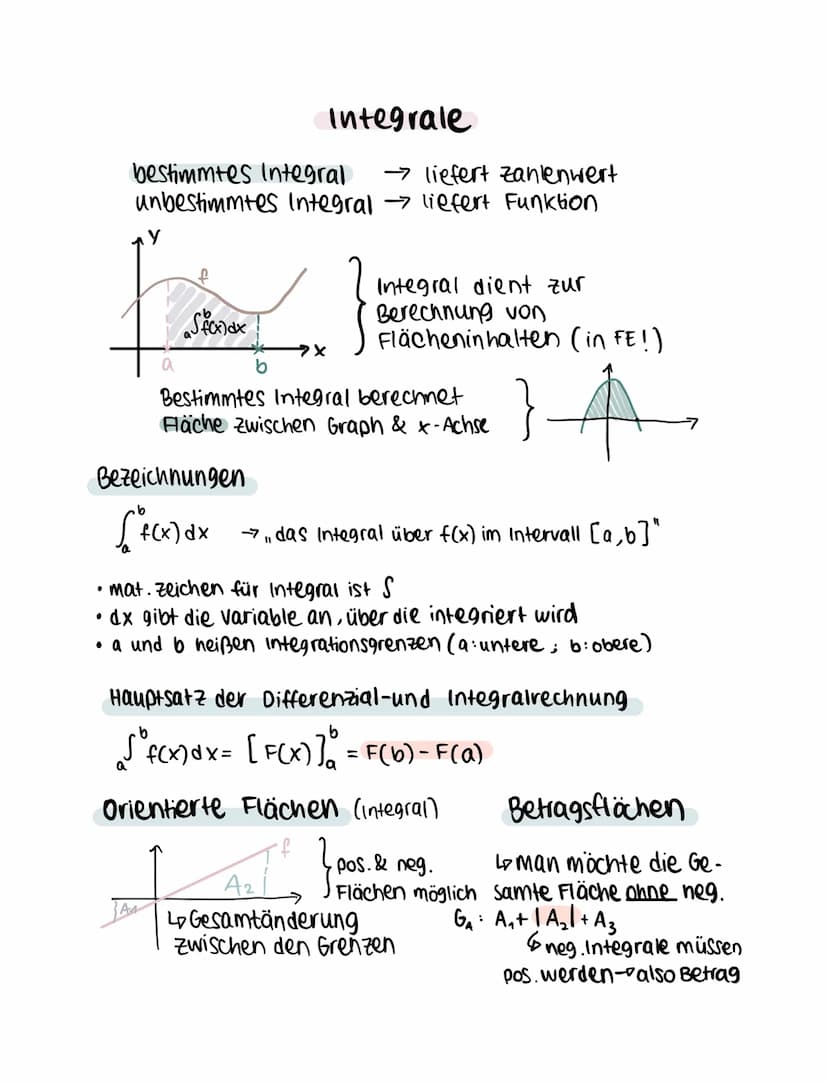 Integrale
bestimmtes Integral → liefert Zahlenwert
unbestimmtes Integral → liefert Funktion
y
f
a∫b f(x)dx
x
a
b
Integral dient zur
Berechnung von
Flächeninhalten (in FE!)
Bestimmtes Integral berechnet
Fläche zwischen Graph & x-Achse
Bezeichnungen
∫ₐᵇ f(x) dx → „das Integral über f(x) im Intervall [a,b]"
• mat. Zeichen für Integral ist ∫
• dx gibt die Variable an, über die integriert wird
• a und b heißen Integrationsgrenzen (a:untere ; b:obere)
Hauptsatz der Differenzial-und Integralrechnung
a∫b f(x)dx = [F(x)]ₐᵇ = F(b) - F(a)
Orientierte Flächen (Integral)
f
A1
A2
pos. & neg.
Flächen möglich
↳ Gesamtänderung
zwischen den Grenzen
Betragsflächen
↳ man möchte die Ge-
samte Fläche ohne neg.
G_A : A₁ + |A₂| + A₃
↳ neg. Integrale müssen
pos. werden → also Betrag